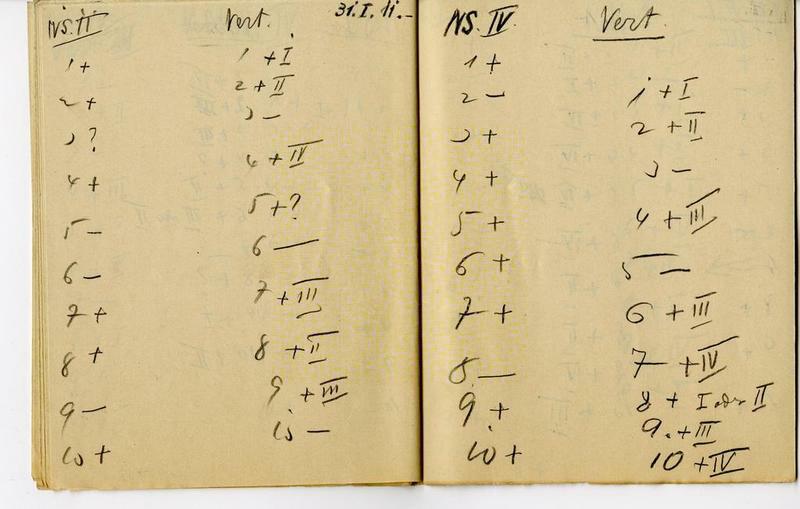 NS. II Vert. 31. I. 11. -
1 + 1 + I
2 + 2 + II
3 ? 3 -
4 + 4 + IV
5 - 5 + ?
6 - 6 —
7 + 7 + III
8 + 8 + II
9 - 9 + III
10 + 10 -
NS. IV Vert.
1 +
2 - 1 + I
3 + 2 + II
4 + 3 -
5 + 4 + III
6 + 5 -
7 + 6 + III
8 — 7 + IV
9 + 8 + I oder II
10 + 9. + III
10 + IV